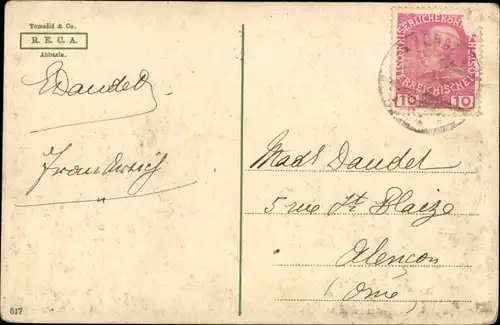 Tomašić & Co.
R. E. C. A.
Abbazia.
EDaudet
Frankreich
KAISERLICHE KÖNIGLICHE ÖSTERREICHISCHE POST
10 10
Madl Daudet
5 rue St Blaize
Alençon
Orne
617